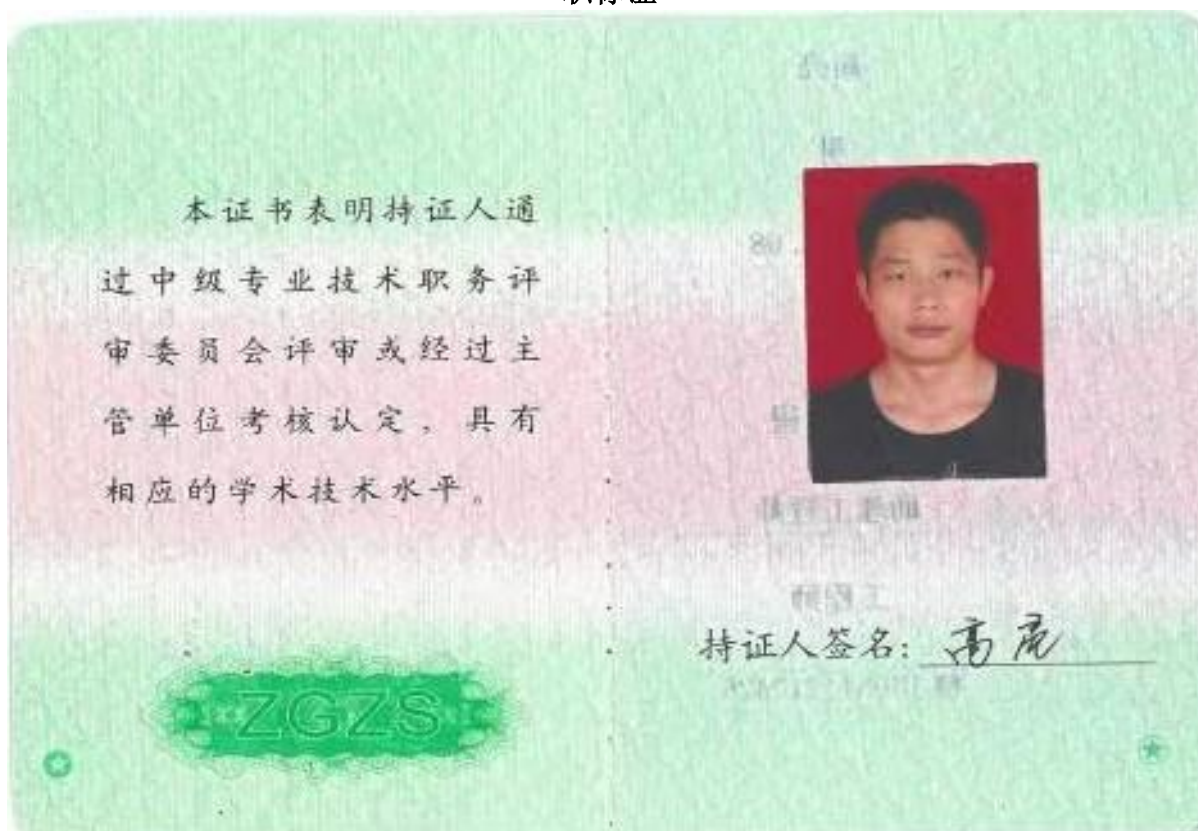 本证书表明持证人通
过中级专业技术职务评
审委员会评审或经过主
管单位考核认定，具有
相应的学术技术水平。
ZGZS
持证人签名：高